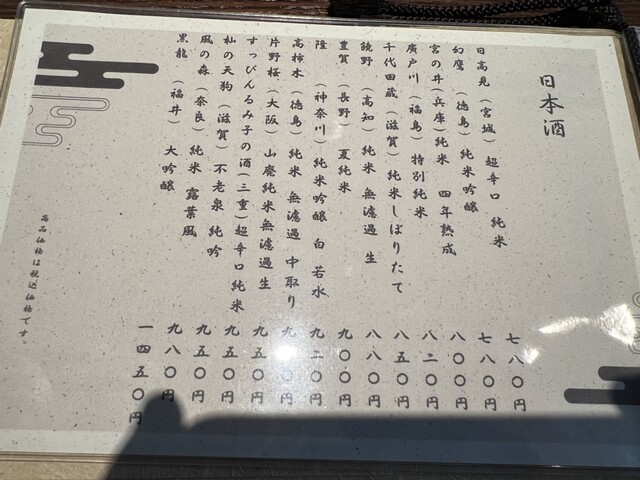 日本酒
日高見（宮城）超辛口 純米 七八〇円
幻鷹（徳島）純米吟醸 七八〇円
宮の井(兵庫)純米 四年熟成 八〇〇円
廣戸川（福島）特別純米 八二〇円
千代田蔵（滋賀）純米しぼりたて 八五〇円
鏡野（高知）純米 無濾過 生 八八〇円
豊賀（長野）夏純米 九〇〇円
隆（神奈川）純米吟醸 白 若水 九二〇円
高柿木（徳島）純米 無濾過 中取り
片野桜（大阪）山廃純米無濾過生 九五〇円
すっぴんるみ子の酒（三重）超辛口純米 九五〇円
杣の天狗（滋賀）不老泉 純吟 九五〇円
風の森（奈良）純米 露葉風 九八〇円
黒龍（福井）大吟醸 一四五〇円
商品価格は税込価格です。